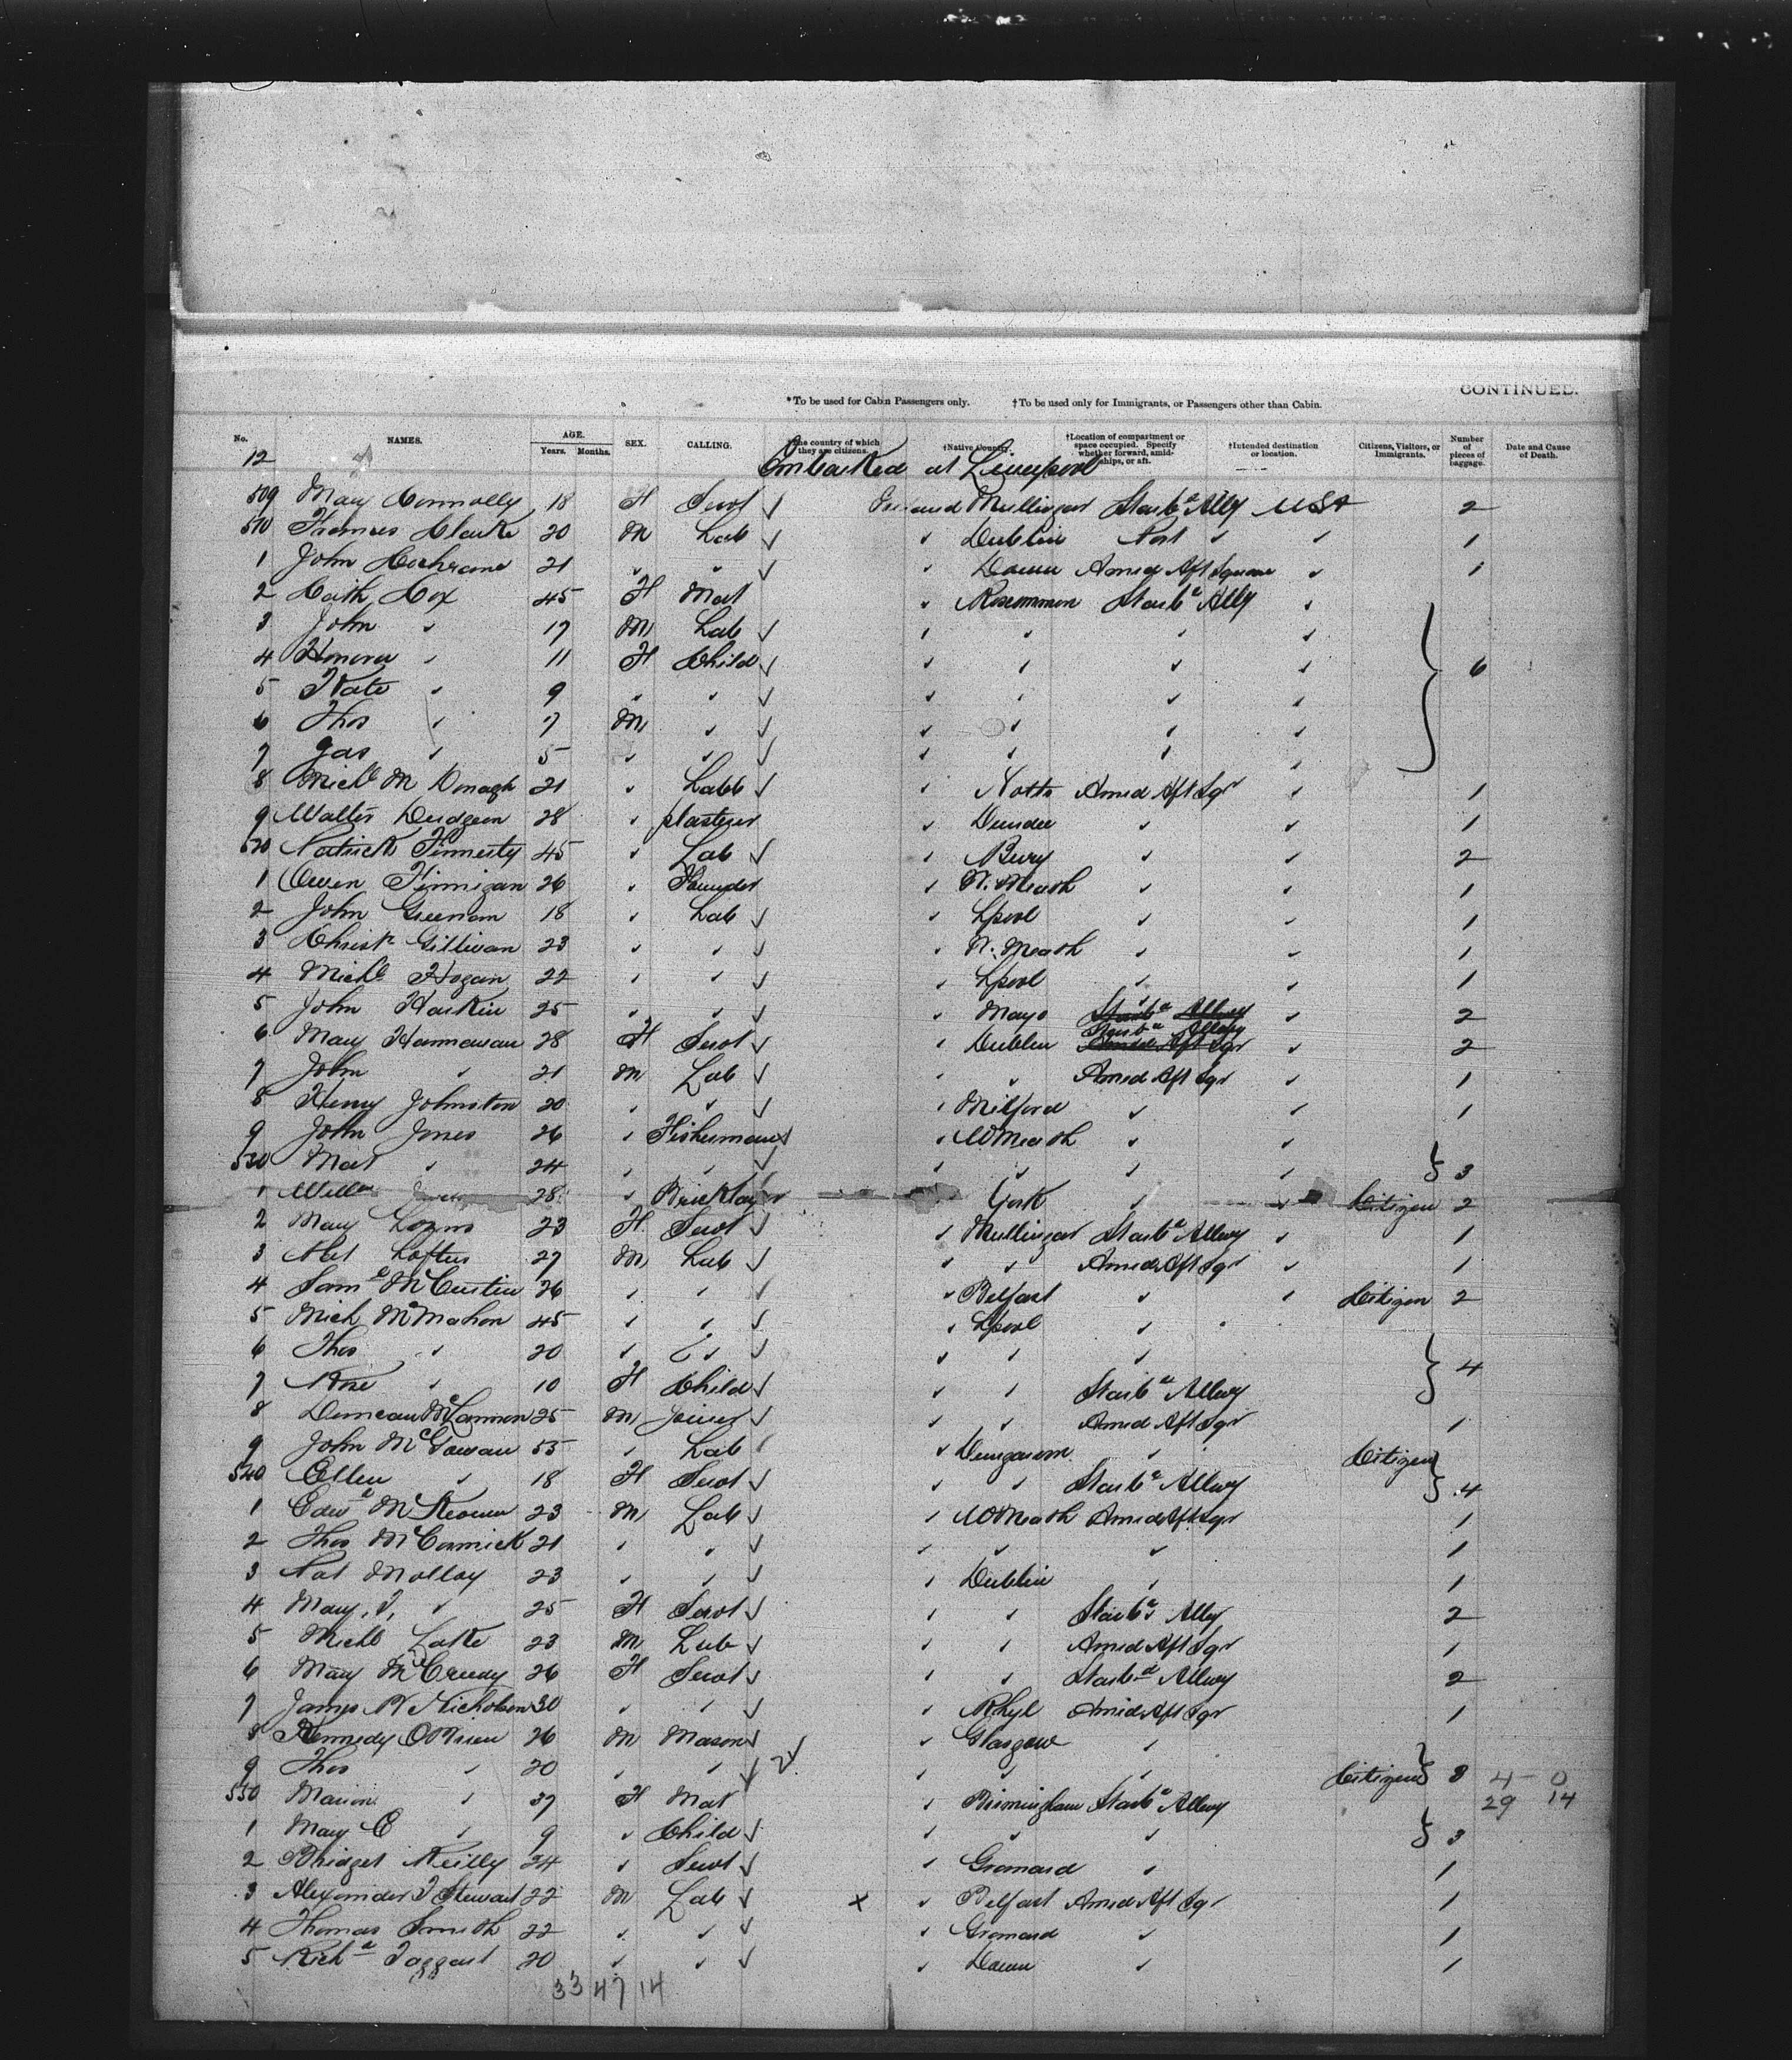 CONTINUED.
*To be used for Cabin Passengers only. †To be used only for Immigrants, or Passengers other than Cabin.
No. NAMES. AGE. Years. Months. SEX. CALLING. *The country of which they are citizens. †Native Country. †Location of compartment or space occupied. Specify whether forward, amidships, or aft. †Intended destination or location. Citizens, Visitors, or Immigrants. Number of pieces of baggage. Date and Cause of Death.
12 Embarked at Liverpool
509 Mary Connolly 18 F Servt ✓ Ireland Mullingar Starbd Ally USA 2
510 Thomas Clarke 20 M Lab ✓ " Dublin Port " " 1
1 John Cochrane 21 " " ✓ " Down Amid Aft Square " 1
2 Cath Cox 45 F Mat " Roscommon Starbd Ally "
3 John " 17 M Lab ✓ " " " "
4 Honora " 11 F Child ✓ " " " " 6
5 Kate " 9 " " ✓ " " " "
6 Thos " 7 M " ✓ " " " "
7 Jas " 5 " " ✓ " " " "
8 Michl McDonagh 21 " Labb ✓ " Notts Amid Aft Sqr " 1
9 Walter Dudgeon 28 " plasterer " Dundee " " 1
520 Patrick Finnerty 45 " Lab ✓ " Bury " " 2
1 Owen Finnigan 26 " Founder " W. Meath " " 1
2 John Greenan 18 " Lab ✓ " Lpool " " 1
3 Christr Gillivan 23 " " ✓ " W. Meath " " 1
4 Michl Hogan 22 " " ✓ " Lpool " " 1
5 John Harkin 25 " " ✓ " Mayo " Starbd Allwy " 2
6 Mary Hannawan 28 F Servt ✓ " Dublin Starbd Allwy Amid Aft Sqr " 2
7 John " 21 M Lab ✓ " " Amid Aft Sqr " 1
8 Henry Johnston 20 " " ✓ " Milford " " 1
9 John Jones 26 " Fisherman ✓ " WMeath " "
530 Mat " 24 " " ✓ " " " " 3
1 Willm 28 " Bricklayer " York " " Citizen 2
2 Mary 23 F Servt ✓ " Mullingar Starbd Allwy " 1
3 Loftus 27 M Lab ✓ " " Amid Aft Sqr " 1
4 Saml McCustin 26 " " ✓ " Belfast " " Citizen 2
5 Mich McMahon 45 " " ✓ " Lpool " "
6 Thos " 20 " " ✓ " " " 4
7 Rose " 10 F Child ✓ " " Starbd Allwy
8 Duncan McLannon 25 M Joiner ✓ " " Amid Aft Sqr 1
9 John McGowan 55 " Lab ✓ " Dungannon " Citizen
540 Ellen " 18 F Servt ✓ " " Starbd Allwy 4
1 Edwd McKeown 23 M Lab ✓ " WMeath Amid Aft Sqr 1
2 Thos McCormick 21 " " ✓ " " " 1
3 Pat Molloy 23 " " ✓ " Dublin " 1
4 Mary " 25 F Servt ✓ " " Starbd Ally 2
5 Michl Lake 23 M Lab ✓ " " Amid Aft Sqr 1
6 Mary McCreedy 26 F Servt ✓ " " Starbd Allwy 2
7 James W Nicholson 30 " " ✓ " Rhyl Amid Aft Sqr 1
8 Kennedy OBrien 26 M Mason ✓ " Glasgow "
9 Thos " 20 " " ✓ " " " Citizens 8 4 - 0
550 Marion " 37 F Mat " Birmingham Starbd Allwy 29 14
1 Mary C " 9 " Child ✓ " " " 3
2 Bridget Reilly 24 " Servt ✓ " Granard " 1
3 Alexander T Stewart 22 M Lab ✓ x " Belfast Amid Aft Sqr 1
4 Thomas Smith 22 " " ✓ " Granard " 1
5 Richd Taggart 20 " " ✓ " Down " 1
33 47 14